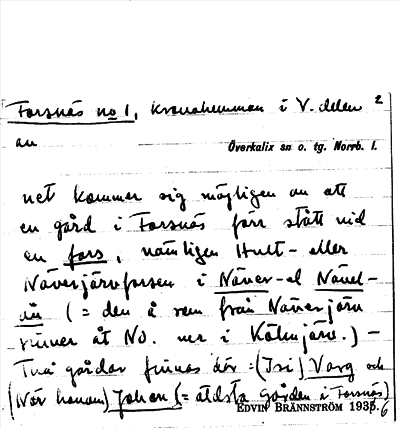 Forsnäs no 1, kronohemman i V. delen 2
av
Överkalix sn o. tg. Norrb. l.
net kommer sig möjligen av att
en gård i Forsnäs förr stått vid
en fors, nämligen Hult- eller
Näverjärvforsen i Näver-el Nävel-
ån (= den å som från Näverjärv
rinner åt NO. ner i Kölmjärv.) –
Två gårdar finnas där: (Isi) Varg och
(När honom) Johan (= äldsta gården i Forsnäs)
EDVIN BRÄNNSTRÖM 1935.6